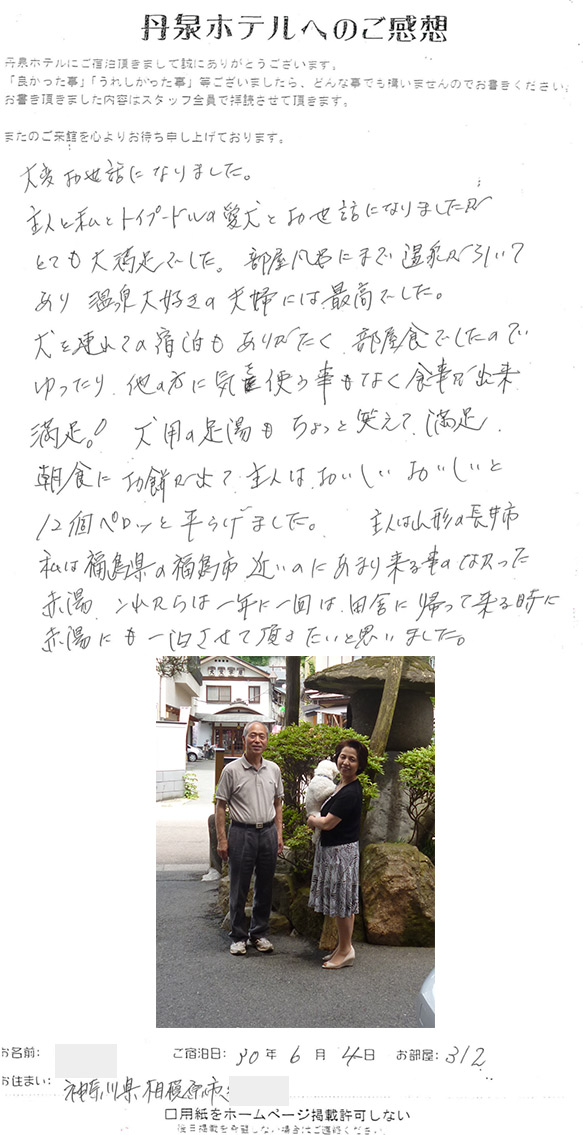 丹泉ホテルへのご感想
丹泉ホテルにご宿泊頂きまして誠にありがとうございます。
「良かった事」「うれしかった事」等ございましたら、どんな事でも構いませんのでお書きください。
お書き頂きました内容はスタッフ全員で拝読させて頂きます。
またのご来館を心よりお待ち申し上げております。
大変お世話になりました。
主人と私とトイプードルの愛犬とお世話になりましたが
とても大満足でした。部屋風呂にまで温泉が引いて
あり 温泉大好きの夫婦には最高でした。
犬を連れての宿泊もありがたく 部屋食でしたので
ゆったり、他の方に気を使う事もなく食事が出来
満足。犬用の足湯もちょっと笑えて、満足、
朝食にお餅が出て、主人は、おいしい おいしいと
12個ペロッと平らげました。 主人は山形の長井市
私は福島県の福島市 近いのにあまり来る事のなかった
赤湯、これからは一年に一回は、田舎に帰って来る時に
赤湯にも一泊させて頂きたいと思いました。
お名前: ご宿泊日: 30年 6月 4日 お部屋: 312
お住まい: 神奈川県相模原市
□用紙をホームページ掲載許可しない
後日掲載を希望しない場合はご連絡ください。